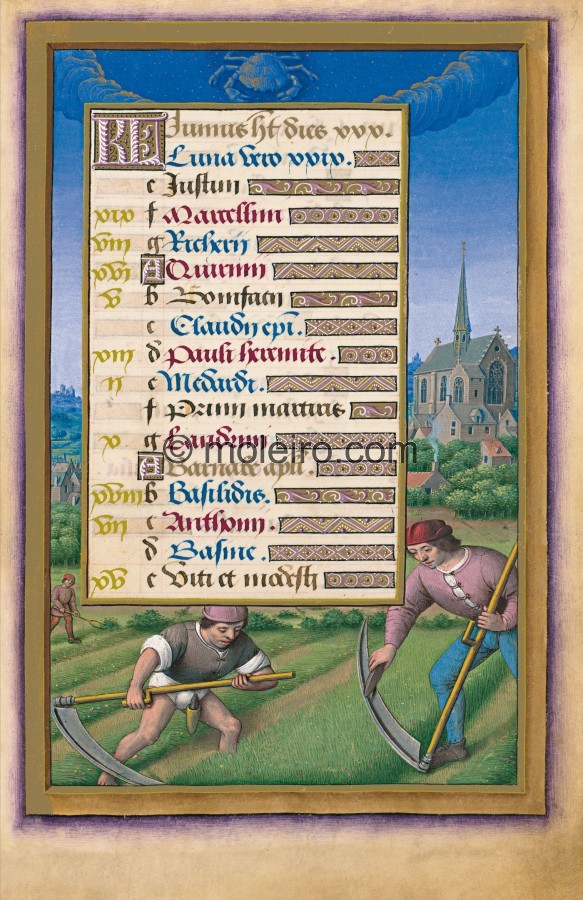 KL Junius ht dies xxx.
Luna vero xxix.
e Justini
xix f Marcellini
viii g Richerii
xvi A Quirini
v b Bonifacii
c Claudii epi.
xiii d Pauli heremite.
ii e Medardi.
f Primi martiris
x g Landrini
A Barnabe apli.
xviii b Basilidis.
vii c Anthonii.
d Basine.
xv e Viti et modesti
© moleiro.com